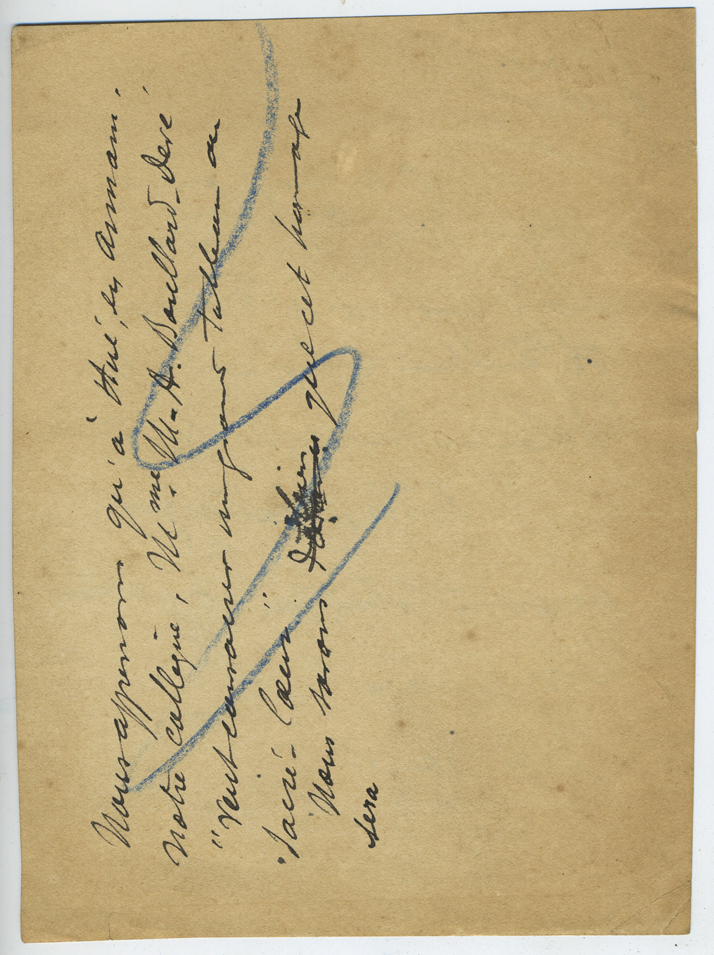 Nous apprenons qu'à Hué, en Annam,
notre collègue, Mme M-A. Boullard-Devé
"vient consacrer un grand Tableau au
"Sacré-Coeur"
Nous savons que cet hommage
sera